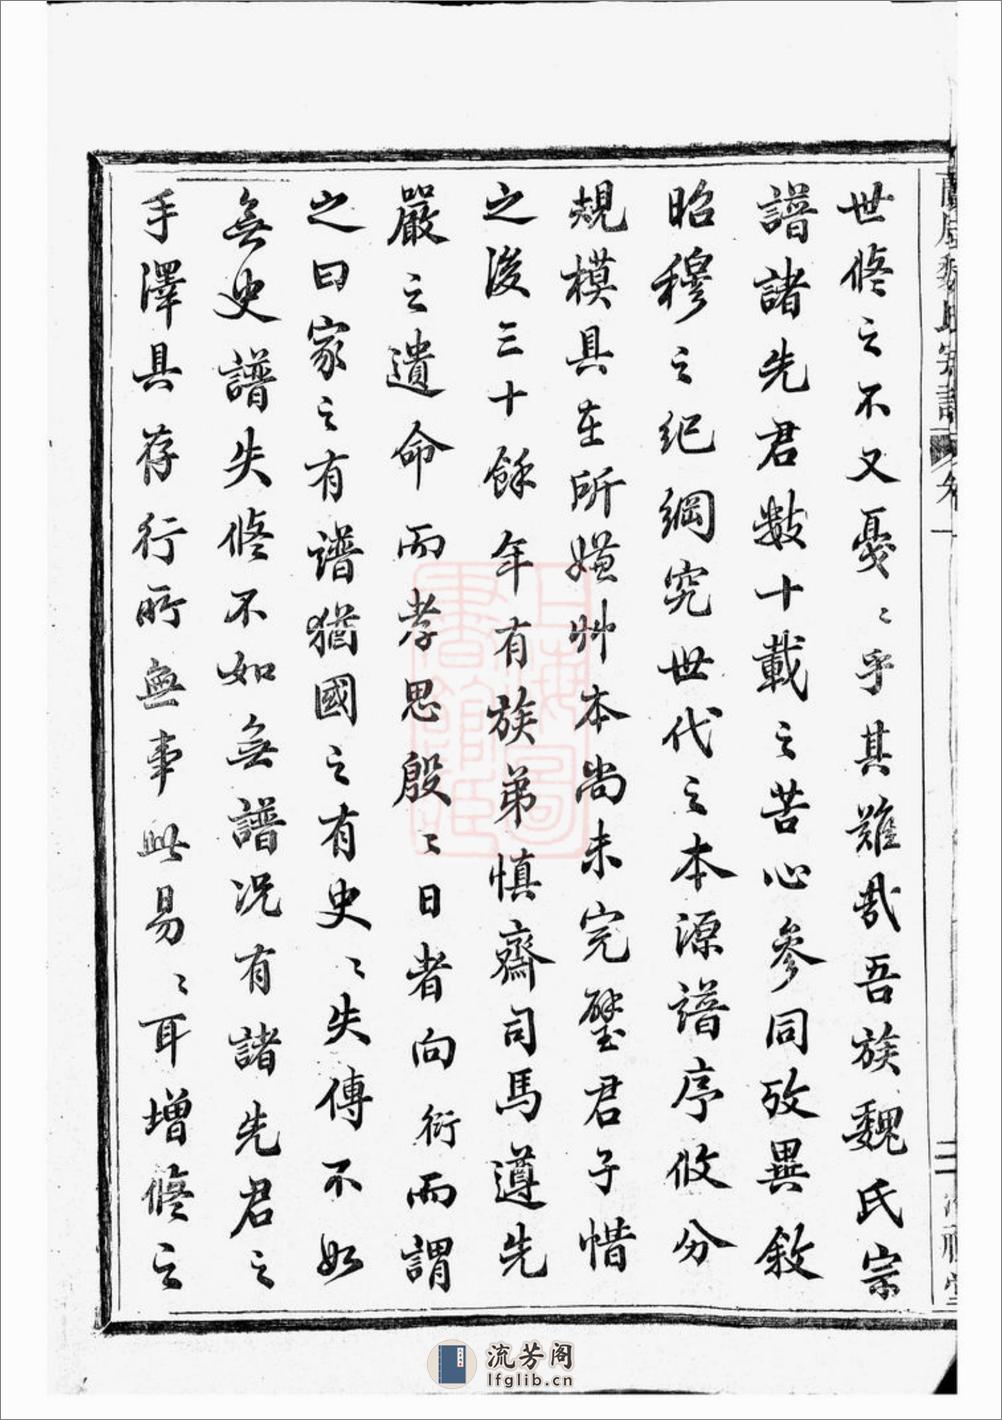 世修之不又憂〻乎其難哉吾族魏氏宗
譜諸先君數十載之苦心參同攷異敘
昭穆之紀綱究世代之本源譜序攸分
規模具在所嫌艸本尚未完璧君子惜
之後三十餘年有族弟慎齋司馬遵先
嚴之遺命而孝思殷〻日者向衍而謂
之曰家之有譜猶國之有史〻失傳不如
無史譜失修不如無譜况有諸先君之
手澤具存行所無事此易〻耳增修之
魏氏宗譜
卷一
二
上海圖書館藏
流芳阁
lfglib.cn